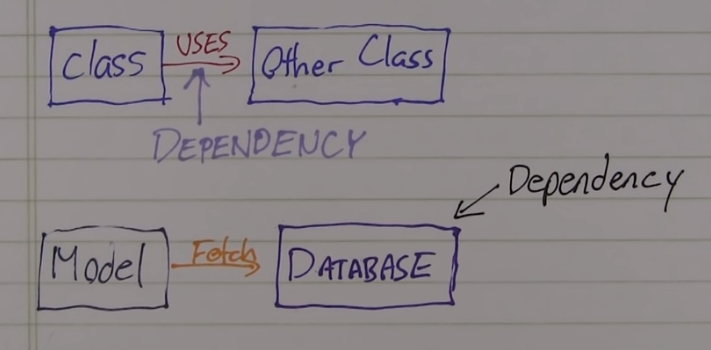 Class USES Other Class
DEPENDENCY
Dependency
Model Fetch DATABASE